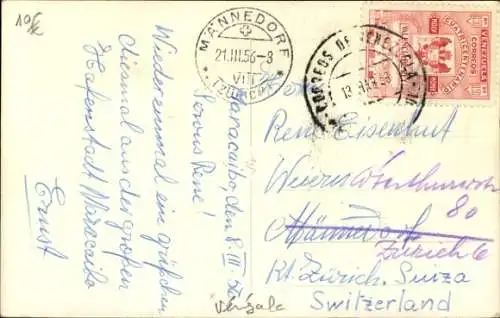 10.-
MÄNNEDORF
21.III.56-8
VIII
(ZÜRICH)
CORREOS DE VENEZUELA
13 MAR
VENEZUELA
CORREOS
CUATRICENTENARIO
Maracaibo, den 8.III.56
Servus René!
Wiedereinmal ein grüsschen
diesmal aus der grossen
Hafenstadt Maracaibo
Ernst
Herr
René Eisenhut
80
Männedorf
Zürich 6
Kt. Zürich. Suiza
Switzerland